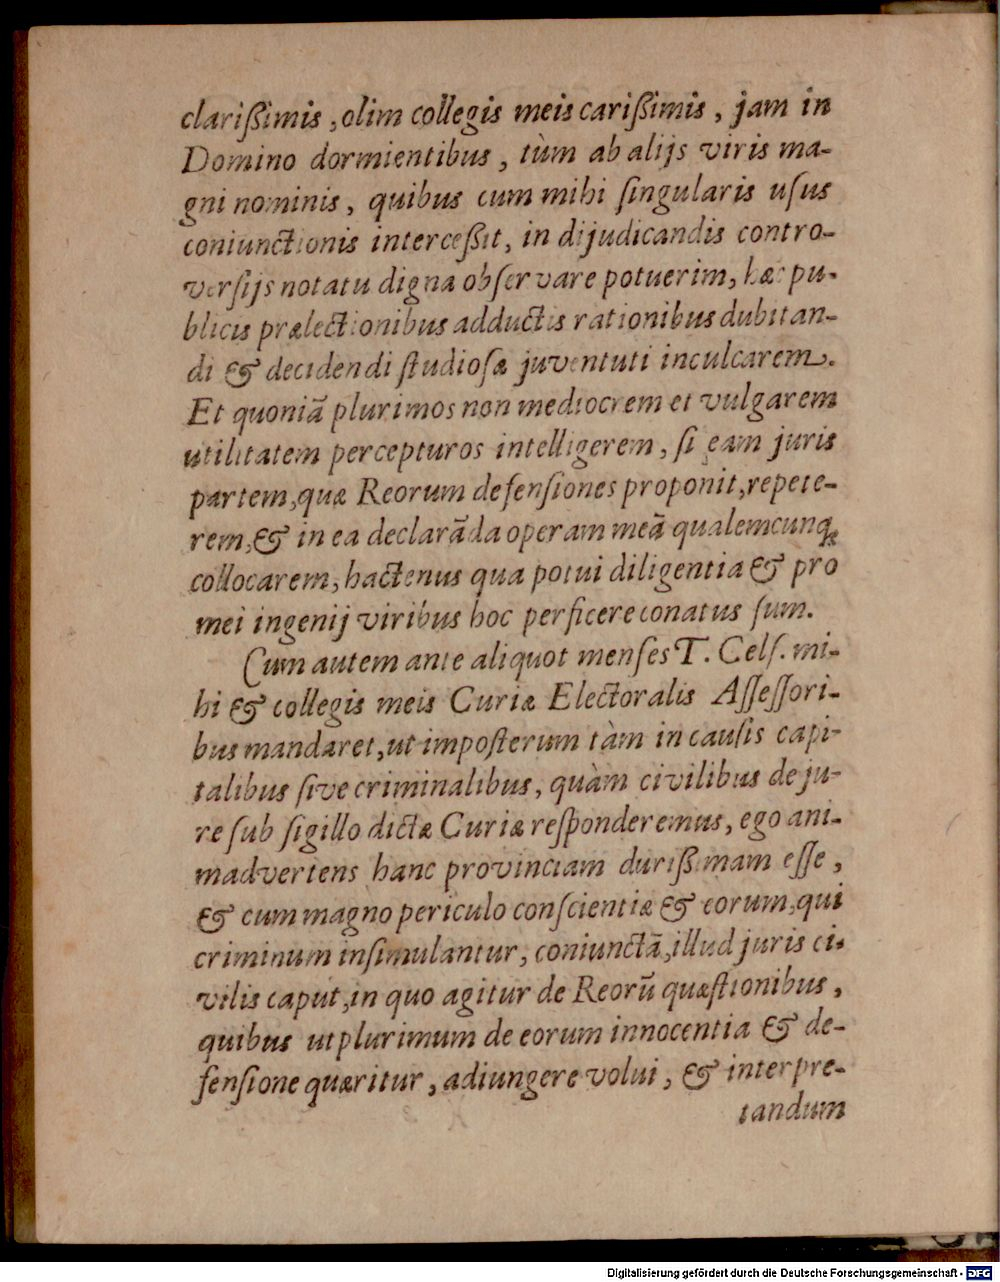 clarißimis, olim collegis meis carißimis, jam in
Domino dormientibus, tùm ab alijs viris ma-
gni nominis, quibus cum mihi ſingularis uſus
coniunctionis interceßit, in dijudicandis contro-
verſijs notatu digna obſervare potuerim, hæc pu-
blicis prælectionibus adductis rationibus dubitan-
di & decidendi ſtudioſæ juventuti inculcarem.
Et quoniã plurimos non mediocrem et vulgarem
utilitatem percepturos intelligerem, ſi eam juris
partem, quæ Reorum defenſiones proponit, repete-
rem, & in ea declarãda operam meã qualemcunq́;
collocarem, hactenus qua potui diligentia & pro
mei ingenij viribus hoc perficere conatus ſum.
Cum autem ante aliquot menſes T. Celſ. mi-
hi & collegis meis Curiæ Electoralis Aſſeſſori-
bus mandaret, ut impoſterum tàm in cauſis capi-
talibus ſive criminalibus, quàm civilibus de ju-
re ſub ſigillo dictæ Curiæ reſponderemus, ego ani-
madvertens hanc provinciam durißimam eſſe,
& cum magno periculo conſcientiæ & eorum, qui
criminum inſimulantur, coniunctã, illud juris ci-
vilis caput, in quo agitur de Reorũ quæſtionibus,
quibus ut plurimum de eorum innocentia & de-
fenſione quæritur, adiungere volui, & interpre-
tandum
Digitalisierung gefördert durch die Deutsche Forschungsgemeinschaft - DFG